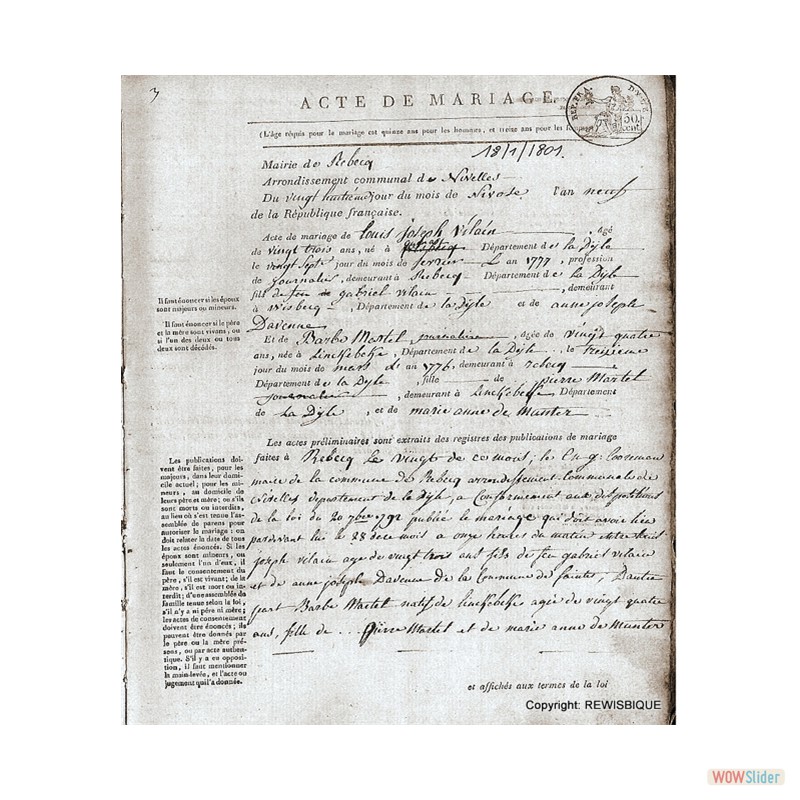 3
ACTE DE MARIAGE.
REP. FRA. 50 cent.
(L'âge requis pour le mariage est quinze ans pour les hommes, et treize ans pour les femmes)
18/1/1801.
Mairie de Rebecq
Arrondissement communal de Nivelles
Du vingt huitième jour du mois de Nivose l'an neuf
de la République française.
Acte de mariage de Louis Joseph Vilain, âgé
de vingt trois ans, né à Département de la Dyle
le vingt sept jour du mois de fevrier L an 1777, profession
de journalier, demeurant à Rebecq Département de la Dyle
fils de feu gabriel vilain, demeurant
à Wisbecq, Département de la dyle et de anne joseph
Davenne
Et de Barbe Martel journaliere, âgée de vingt quatre
ans, née à Linckebeke, Département de la Dyle, le treizieme
jour du mois de mars L an 1776, demeurant à rebecq
Département de la Dyle, fille de pierre Martel
journalier, demeurant à Linckebeke Département
de La Dyle, et de marie anne de Munter
Il faut énoncer si les époux
sont majeurs ou mineurs.
Il faut énoncer si le père
et la mère sont vivans, ou
si l'un des deux ou tous
deux sont décédés.
Les actes préliminaires sont extraits des registres des publications de mariage
faites à Rebecq Le vingt de ce mois, le
maire de la commune de Rebecq arrondissement communale de
nivelles departement de la Dyle, a Conformement aux dispositions
de la loi du 20 7bre 1792 publié le mariage qui doit avoir lieu
pardevant lui le 28 dece mois a onze heures du matin entre Louis
joseph vilain age de vingt trois ans fils de feu gabriel vilain
et de anne joseph Davenne de la Commune de Saintes, Dautre
part Barbe Martel native de linckebeke agée de vingt quatre
ans, fille de ... pierre Martel et de marie anne de Munter
Les publications doi-
vent être faites, pour les
majeurs, dans leur domi-
cile actuel; pour les mi-
neurs, au domicile de
leurs père et mère; ou s'ils
sont morts ou interdits,
au lieu où s'est tenue l'as-
semblée de parens pour
autoriser le mariage : on
doit relater la date de tous
les actes énoncés. Si les
époux sont mineurs, ou
seulement l'un d'eux, il
faut le consentement du
père, s'il est vivant; de la
mère, s'il est mort ou in-
terdit; d'une assemblée de
famille tenue selon la loi,
s'il n'y a ni père ni mère;
les actes de consentement
doivent être énoncés; ils
peuvent être donnés par
le père ou la mère pré-
sens, ou par acte authen-
tique. S'il y a eu opposi-
tion, il faut mentionner
la main-levée, et l'acte ou
jugement qui l'a donnée.
et affichés aux termes de la loi
Copyright: REWISBIQUE
WOWSlider